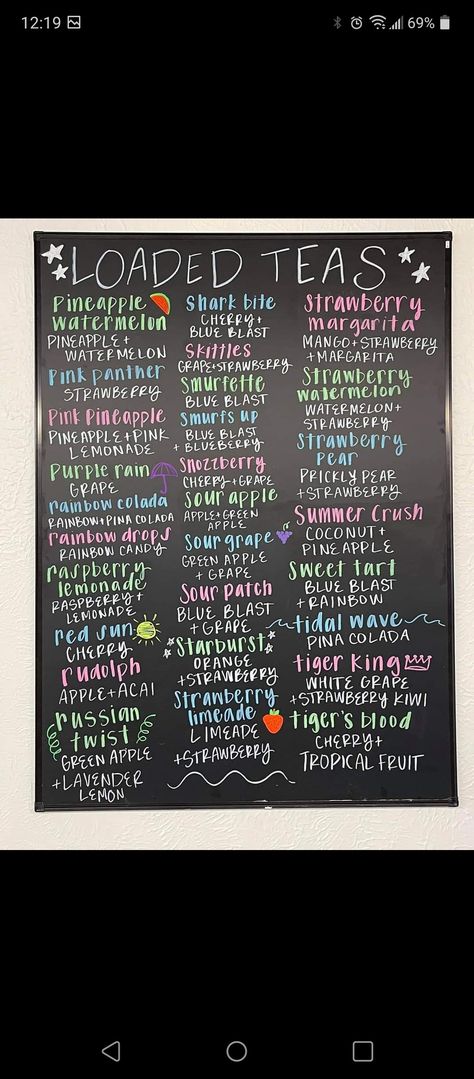 12:19
69%
LOADED TEAS
Pineapple
watermelon
PINEAPPLE +
WATERMELON
Pink panther
STRAWBERRY
Pink Pineapple
PINEAPPLE + PINK
LEMONADE
Purple rain
GRAPE
rainbow colada
RAINBOW + PINA COLADA
rainbow drops
RAINBOW CANDY
raspberry
lemonade
RASPBERRY +
LEMONADE
red sun
CHERRY
rudolph
APPLE + ACAI
russian
twist
GREEN APPLE
+ LAVENDER
LEMON
Shark bite
CHERRY +
BLUE BLAST
Skittles
GRAPE + STRAWBERRY
Smurfette
BLUE BLAST
Smurfs up
BLUE BLAST
+ BLUEBERRY
Snozzberry
CHERRY + GRAPE
Sour apple
APPLE + GREEN
APPLE
Sour grape
GREEN APPLE
+ GRAPE
Sour Patch
BLUE BLAST
+ GRAPE
Starburst
ORANGE
+ STRAWBERRY
Strawberry
limeade
LIMEADE
+ STRAWBERRY
Strawberry
margarita
MANGO + STRAWBERRY
+ MARGARITA
Strawberry
watermelon
WATERMELON +
STRAWBERRY
Strawberry
Pear
PRICKLY PEAR
+ STRAWBERRY
Summer Crush
COCONUT +
PINEAPPLE
Sweet tart
BLUE BLAST
+ RAINBOW
tidal wave
PINA COLADA
tiger King
WHITE GRAPE
+ STRAWBERRY KIWI
tiger's blood
CHERRY +
TROPICAL FRUIT